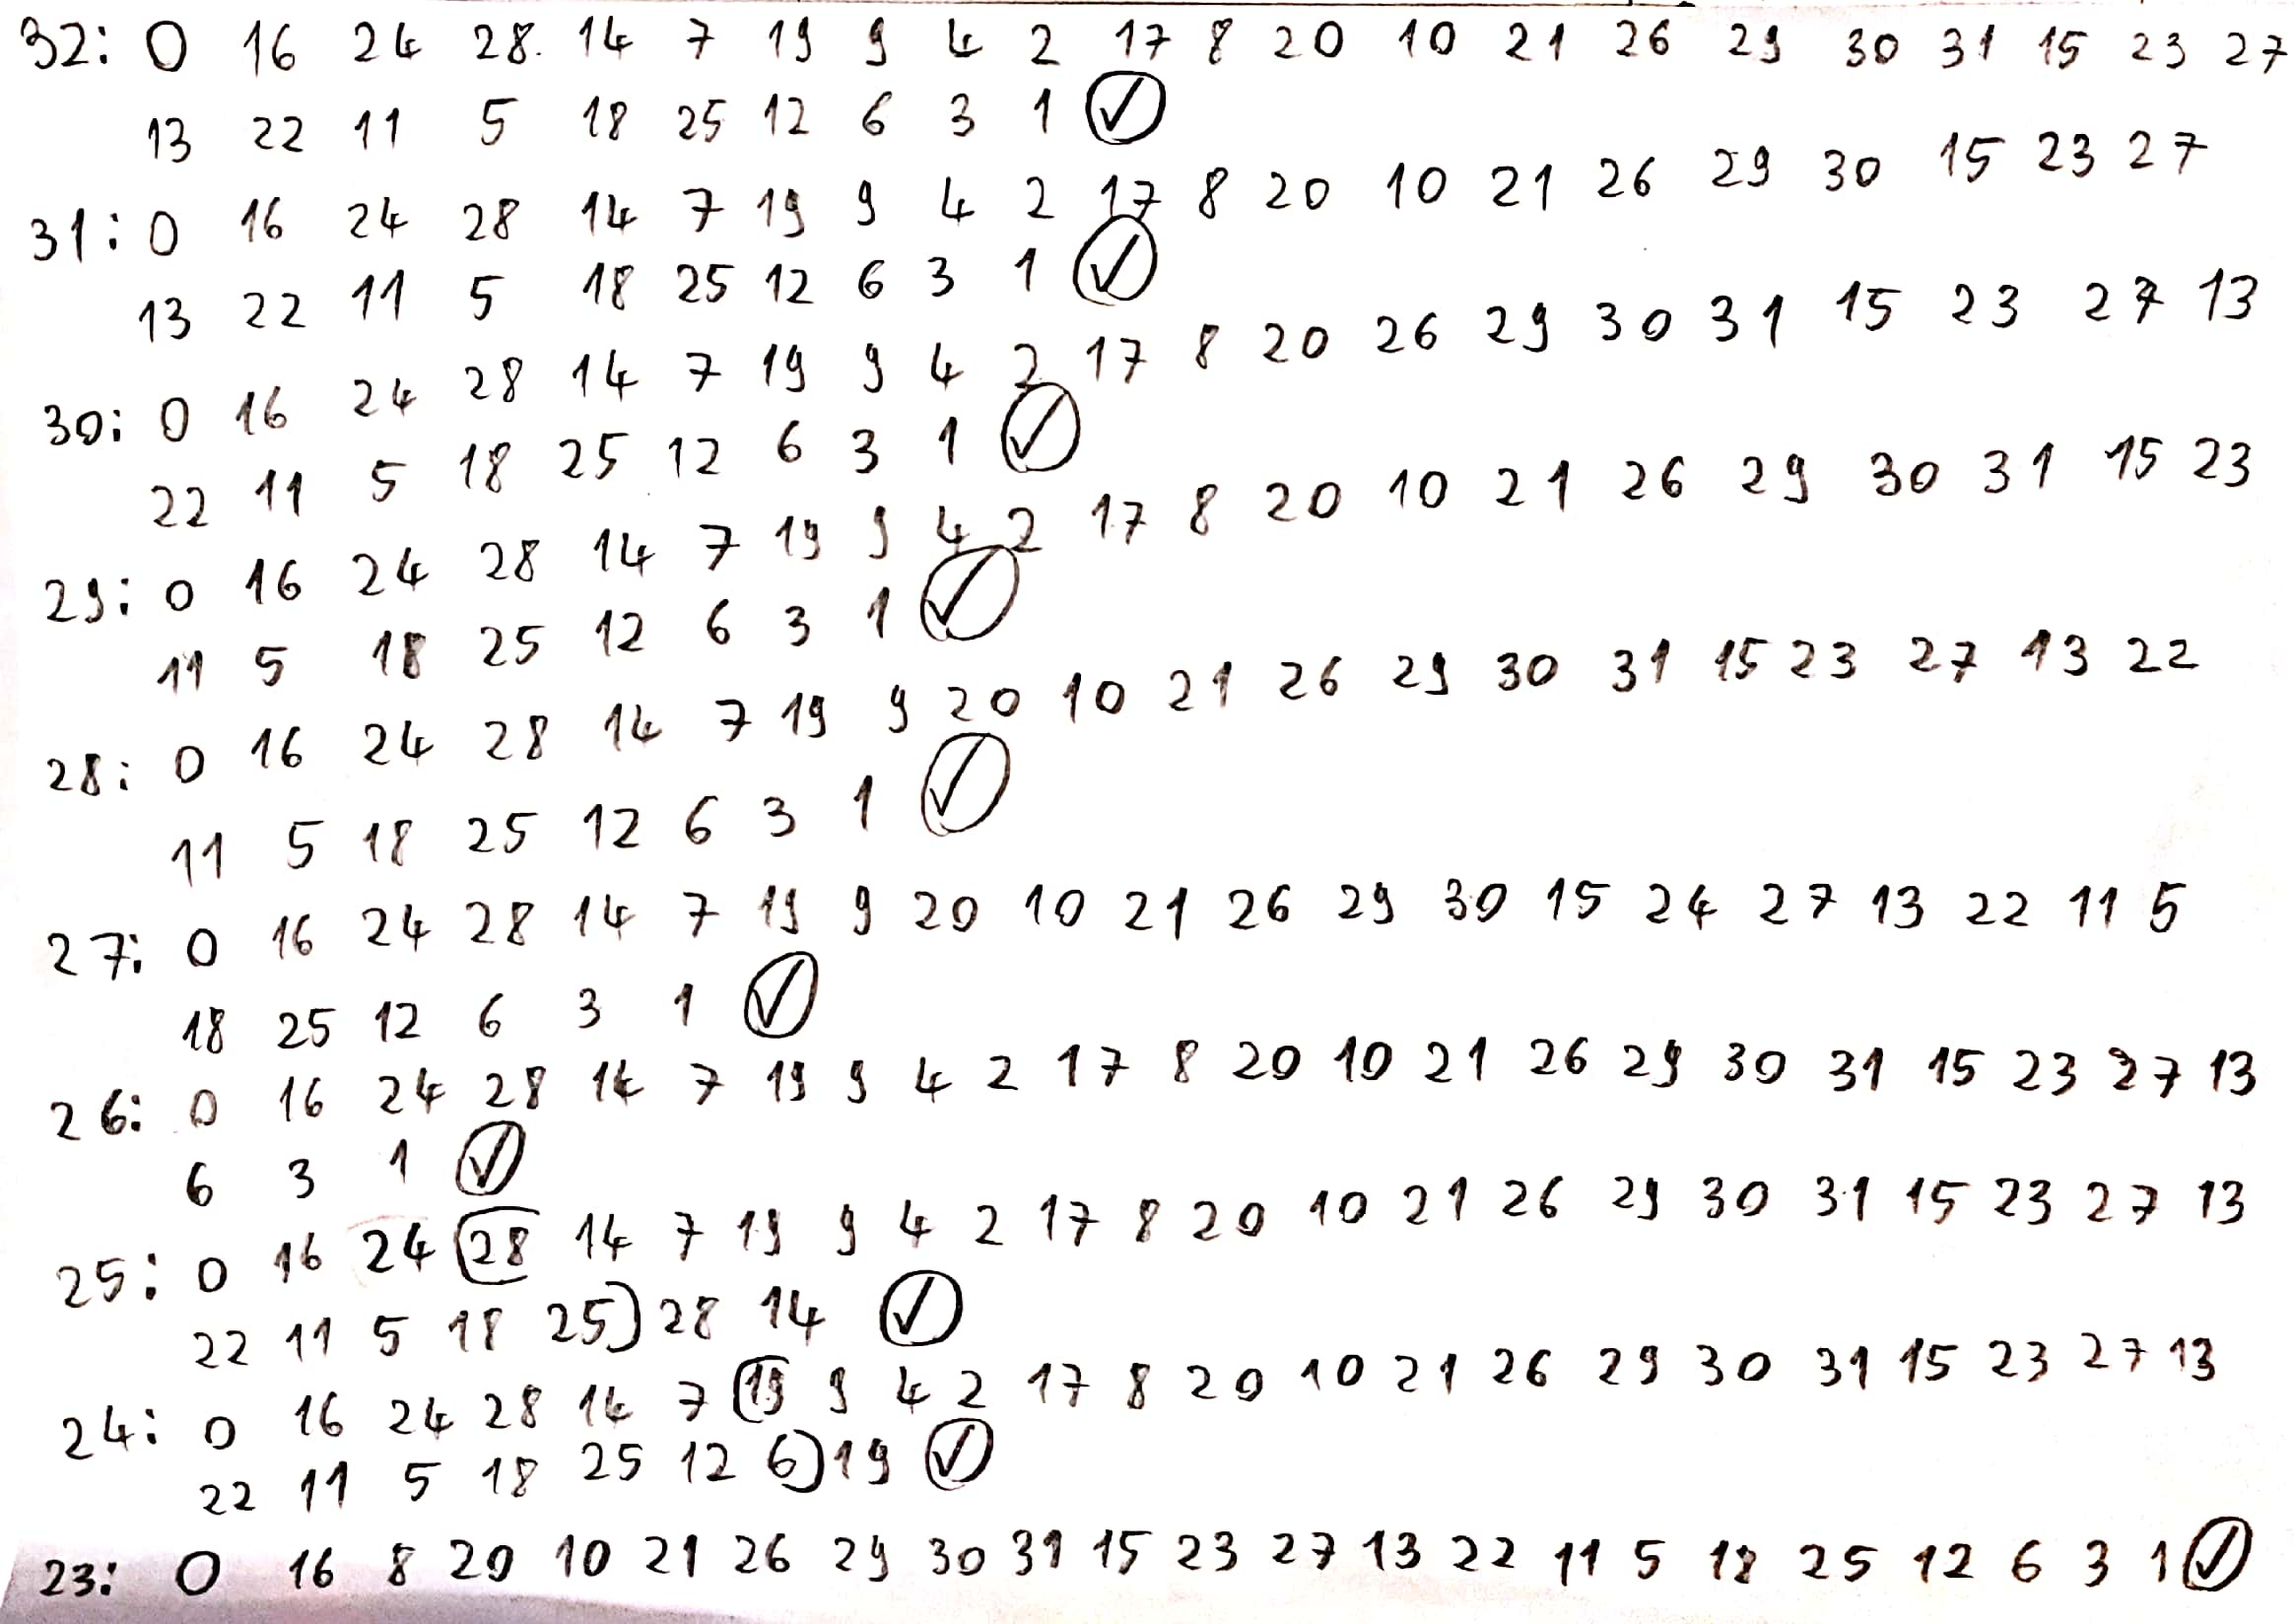 32: 0 16 24 28 14 7 19 9 4 2 17 8 20 10 21 26 29 30 31 15 23 27
13 22 11 5 18 25 12 6 3 1 ✓
31: 0 16 24 28 14 7 19 9 4 2 17 8 20 10 21 26 29 30 15 23 27
13 22 11 5 18 25 12 6 3 1 ✓
30: 0 16 24 28 14 7 19 9 4 2 17 8 20 26 29 30 31 15 23 27 13
22 11 5 18 25 12 6 3 1 ✓
29: 0 16 24 28 14 7 19 9 4 2 17 8 20 10 21 26 29 30 31 15 23
11 5 18 25 12 6 3 1 ✓
28: 0 16 24 28 14 7 19 9 20 10 21 26 29 30 31 15 23 27 13 22
11 5 18 25 12 6 3 1 ✓
27: 0 16 24 28 14 7 19 9 20 10 21 26 29 30 15 24 27 13 22 11 5
18 25 12 6 3 1 ✓
26: 0 16 24 28 14 7 19 9 4 2 17 8 20 10 21 26 29 30 31 15 23 27 13
6 3 1 ✓
25: 0 16 24 (28 14 7 19 9 4 2 17 8 20 10 21 26 29 30 31 15 23 27 13
22 11 5 18 25) 28 14 ✓
24: 0 16 24 28 14 7 (19 9 4 2 17 8 20 10 21 26 29 30 31 15 23 27 13
22 11 5 18 25 12 6) 19 ✓
23: 0 16 8 20 10 21 26 29 30 31 15 23 27 13 22 11 5 18 25 12 6 3 1 ✓